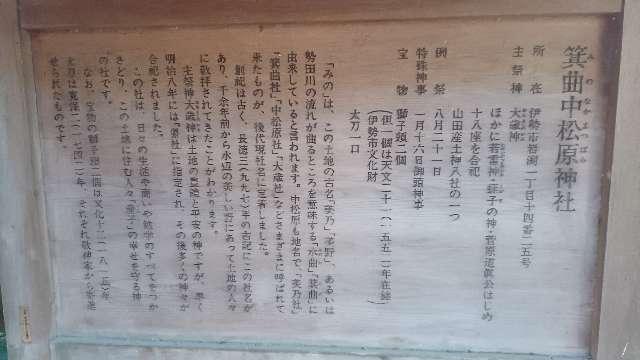 箕曲中松原神社
みのなかまつばら
所在 伊勢市岩渕一丁目十四番二五号
主祭神 大歳神
ほかに若雷神・蘇子の神・菅原道眞公はじめ
十八座を合祀
山田産土神八社の一つ
例祭 八月二十一日
特殊神事 一月十六日御頭神事
宝物 獅子頭二個
(但一個は天文二十一(一五五二)年在銘)
(伊勢市文化財)
太刀一口
「みの」は、この土地の古名「美乃」「茅野」、あるいは
勢田川の流れが曲るところを意味する「水曲」「箕曲」に
由来していると言われます。中松原も地名で、「美乃社」
「箕曲社」「中松原社」「大歳社」などさまざまに呼ばれて
来たものが、後代現社名に定着しました。
創祀は古く、長徳三(九九七)年の古記にこの社名が
あり、千余年前から水辺の美しい杜にあって土地の人々
に敬拝されてきたことがわかります。
主祭神大歳神は土地の豊穣と平安の神ですが、早く
明治八年には「郷社」に指定され、その後多くの神々が
合祀されました。
この社は、日々の生活や商いや勉学のすべてをつか
さどり、この土地に住む人々「産子」の幸せを守る神
の社です。
なお、宝物の獅子頭二個は文化十二(一八一五)年、
太刀は寛保二(一七四二)年、それぞれ敬神家から寄進
せられたものです。